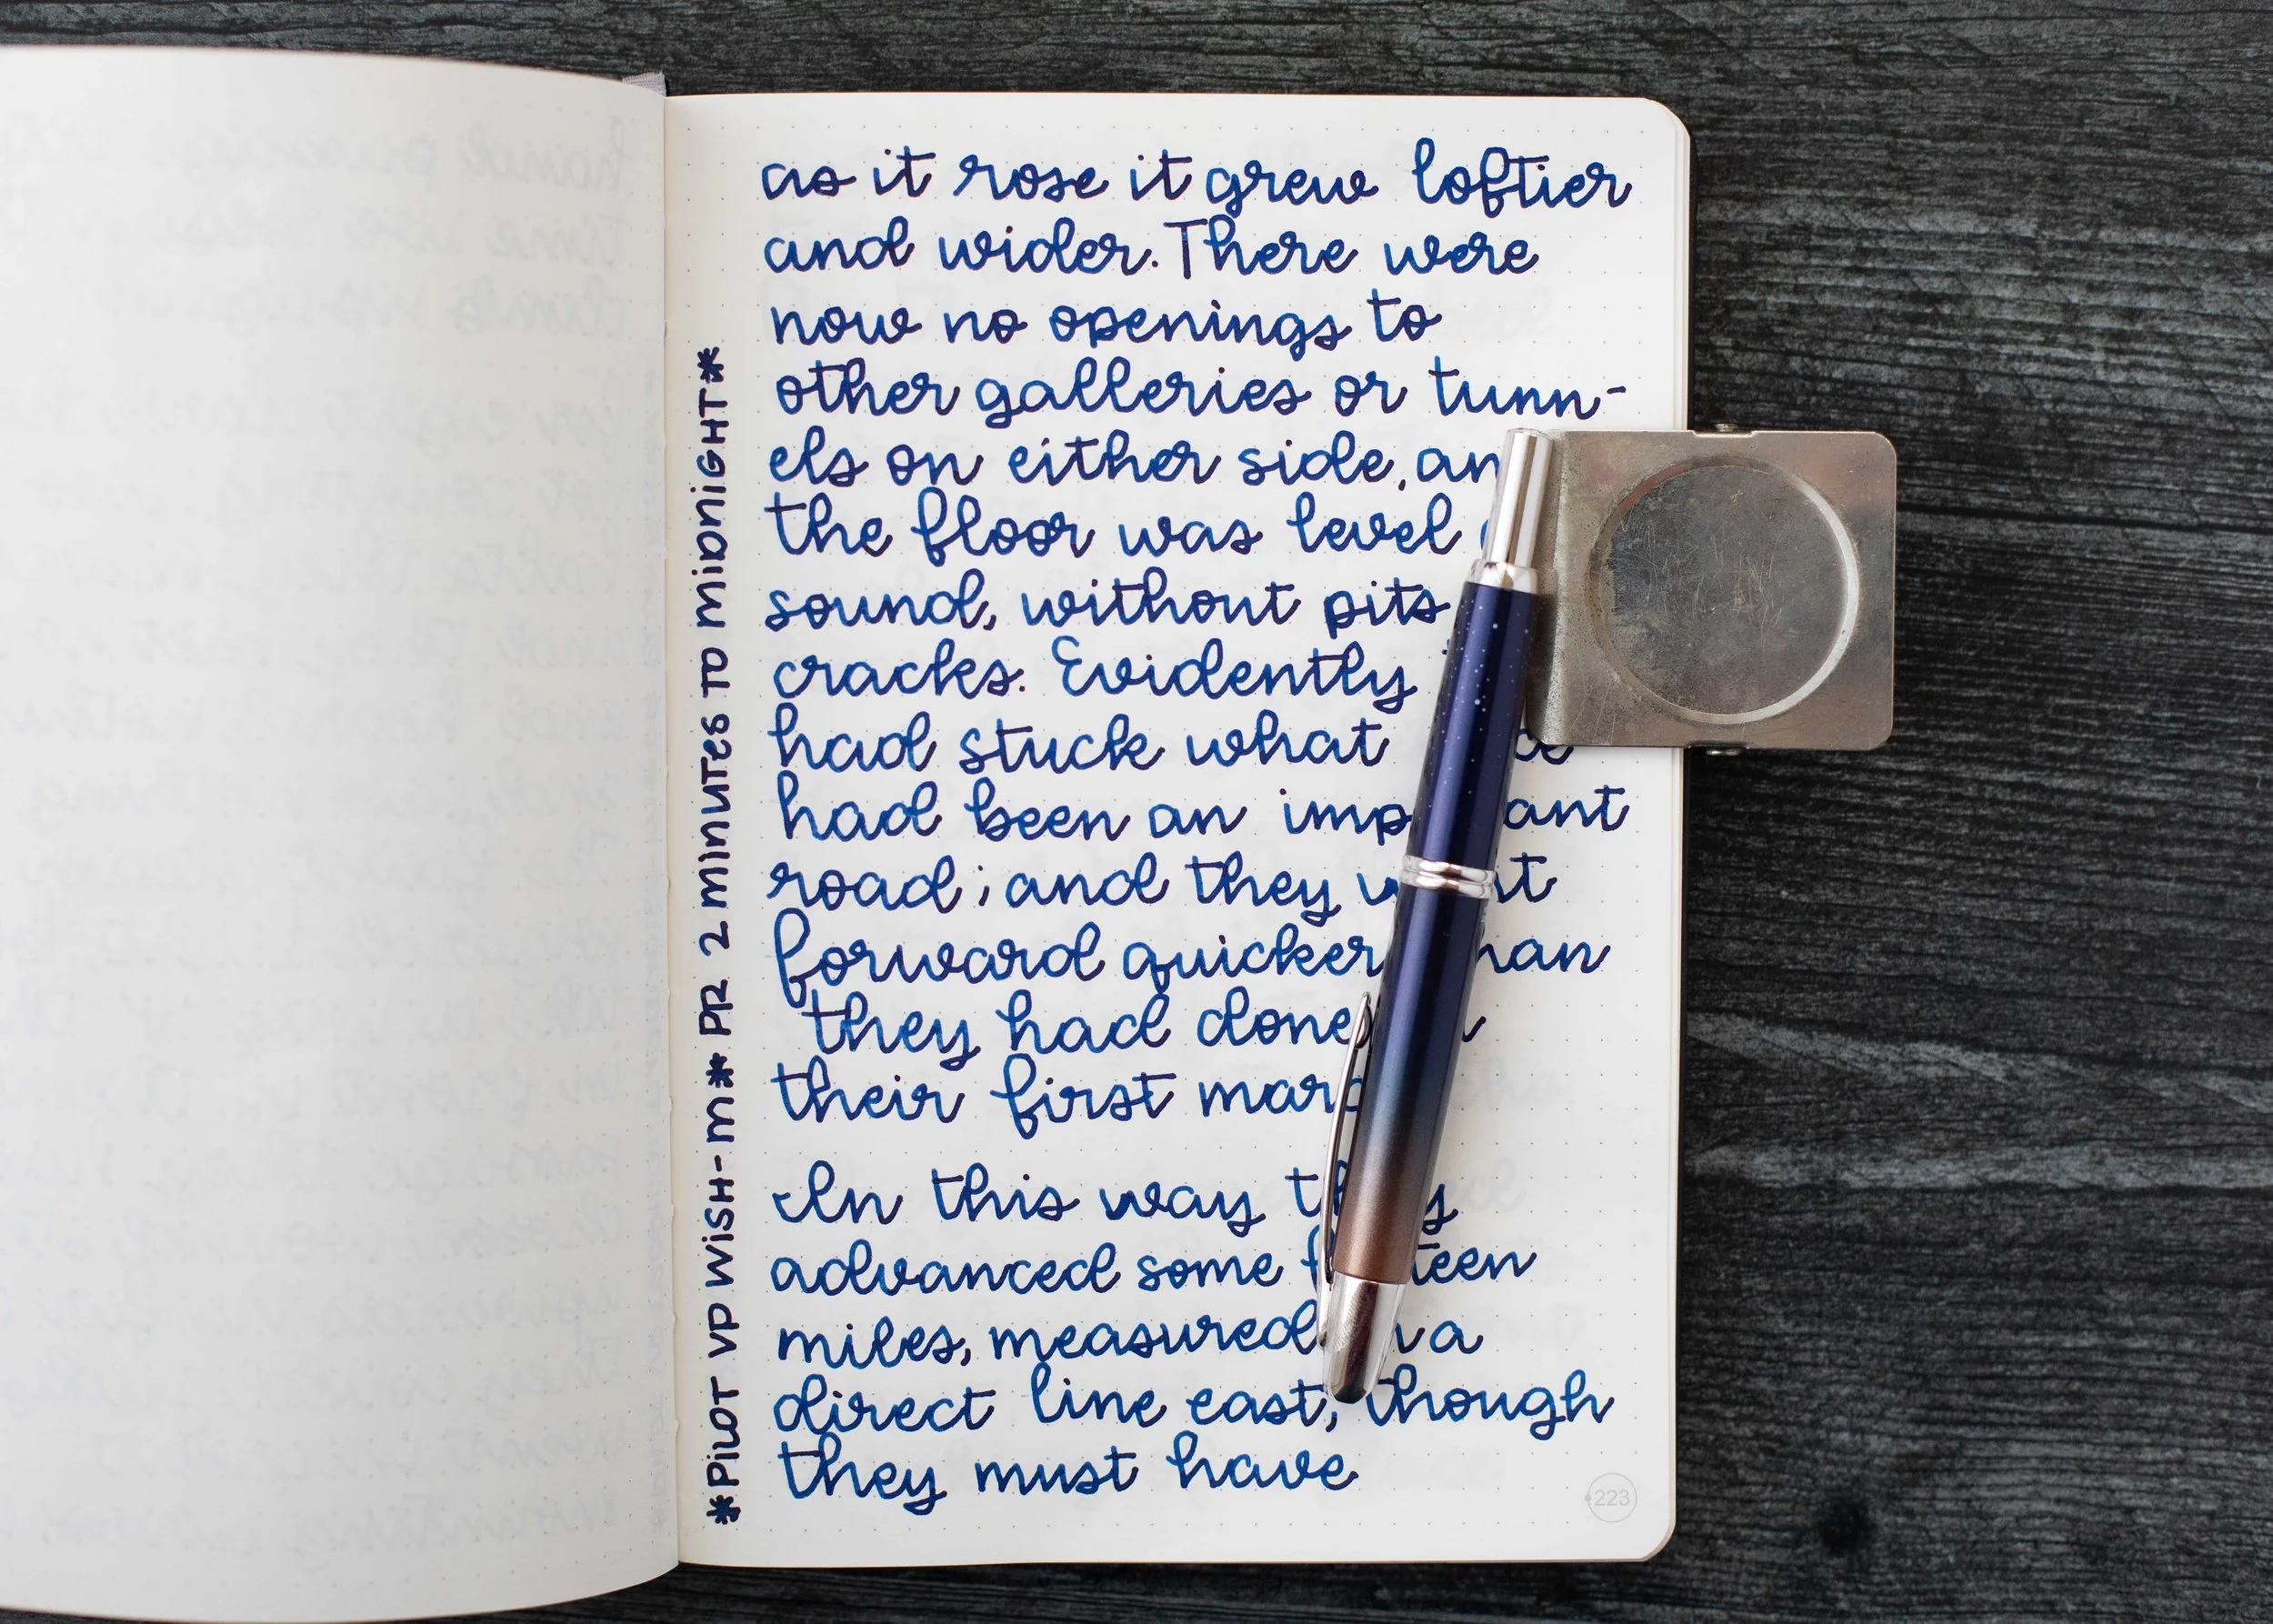 as it rose it grew loftier
and wider. There were
now no openings to
other galleries or tunn-
els on either side, an
the floor was level
sound, without pits
cracks. Evidently
had stuck what
had been an imp ant
road; and they w t
forward quicker han
they had done
their first marc
In this way they
advanced some f teen
miles, measured a
direct line east, though
they must have
*PILOT VP WISH-M* PR 2 MINUTES TO MIDNIGHT*
223